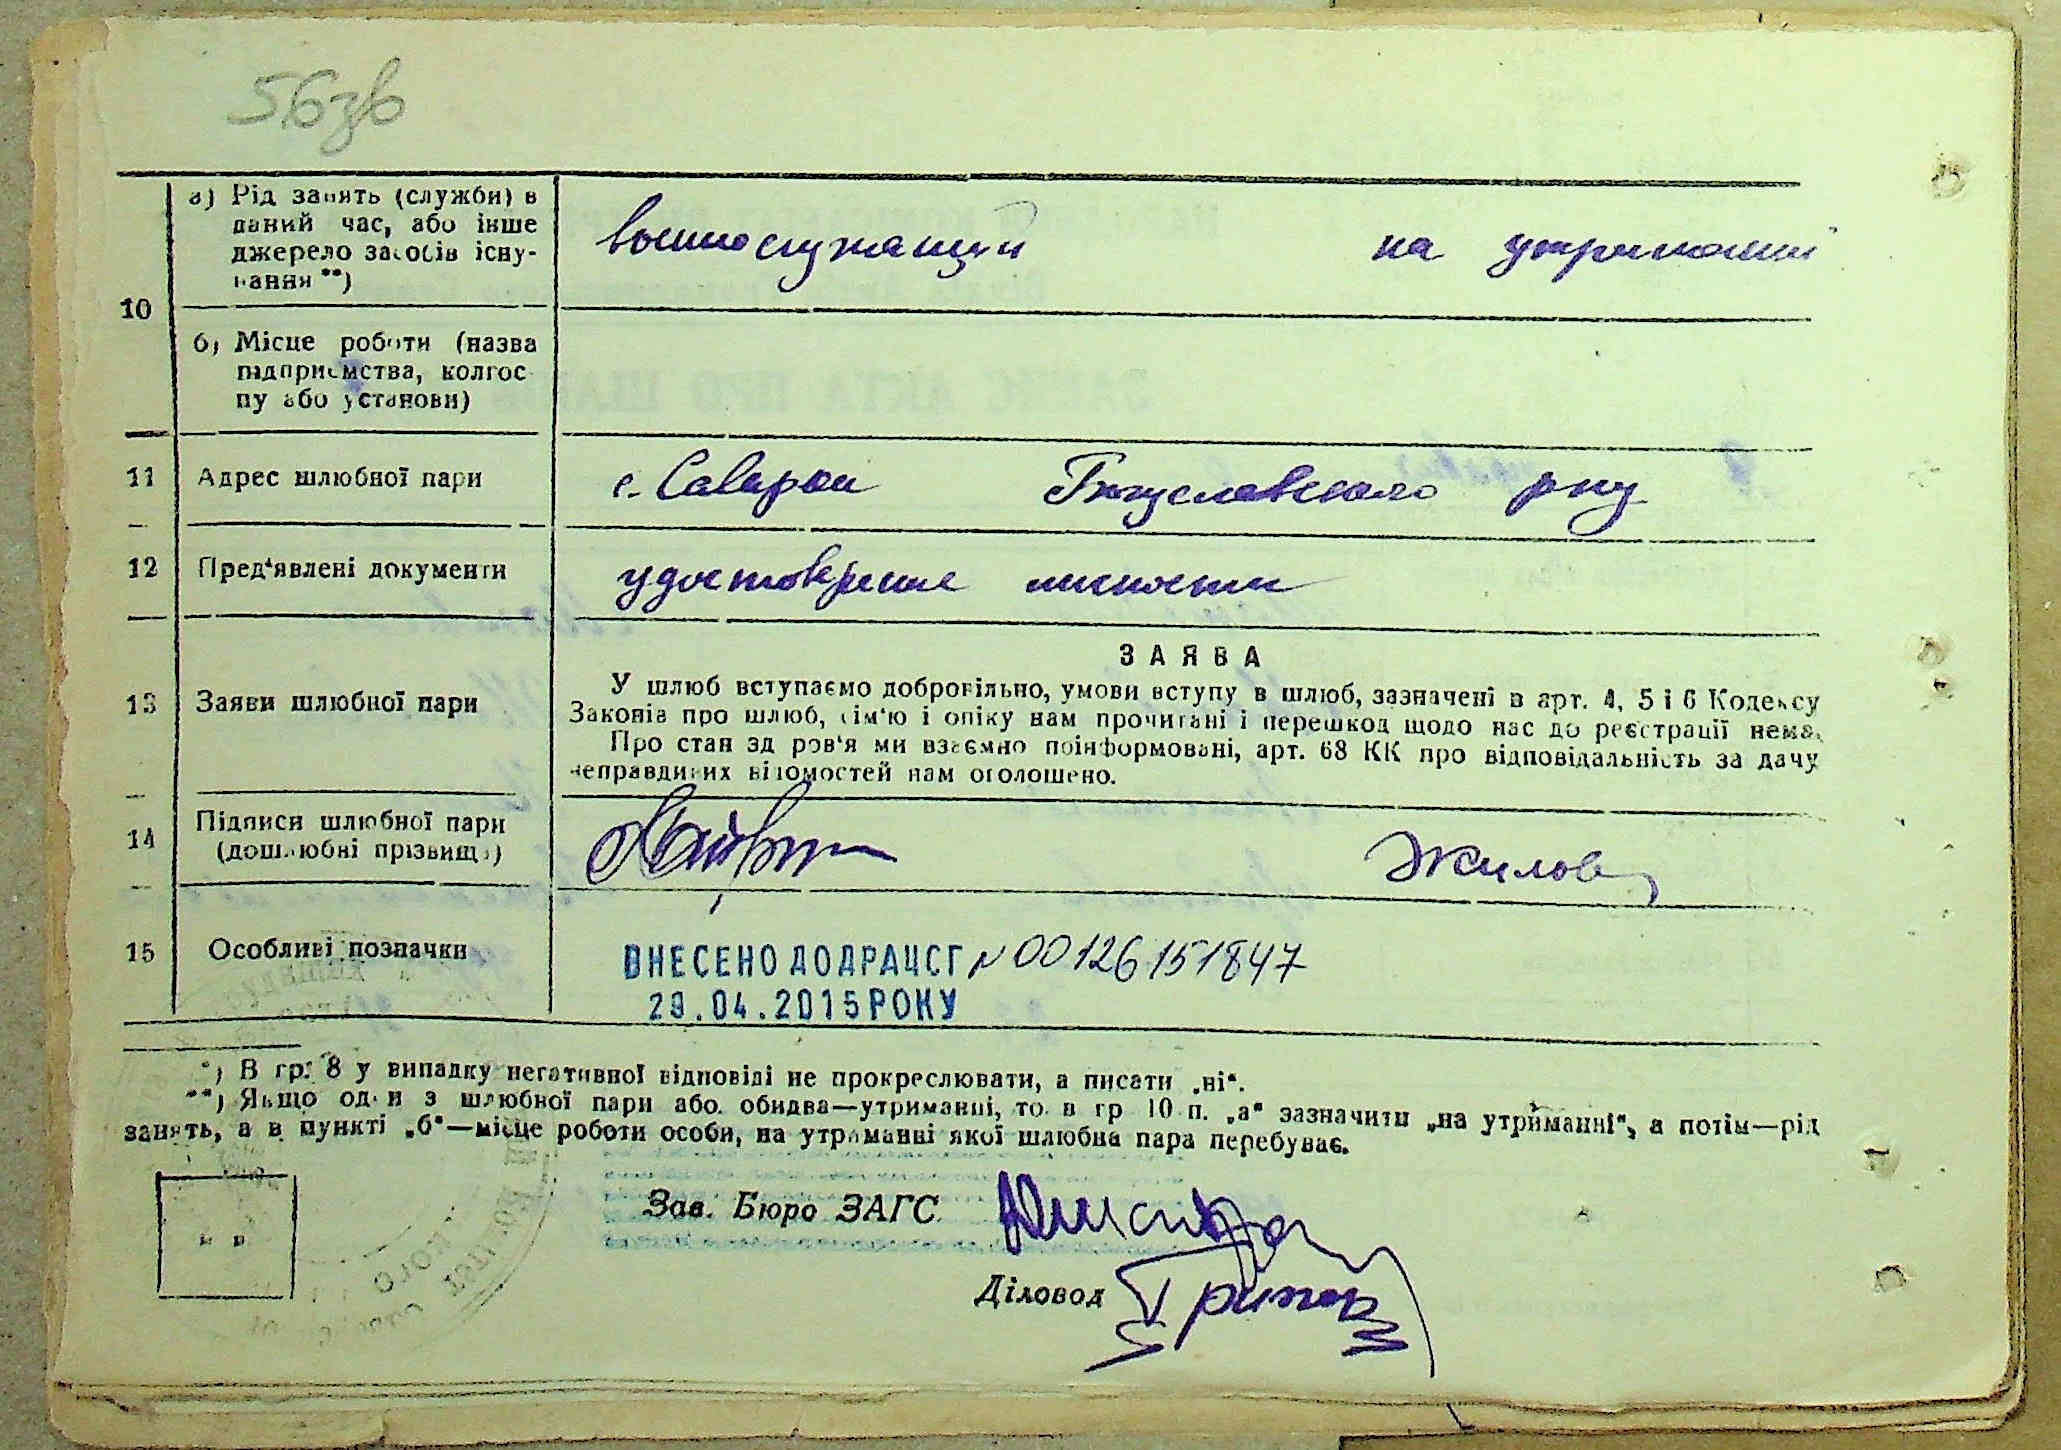 56зв
10
а) Рід занять (служби) в
даний час, або інше
джерело засобів існу-
вання **)
военнослужащий на утриманні
б) Місце роботи (назва
підприємства, колгос
пу або установи)
11 Адрес шлюбної пари
с. Саварки Богуславского р-ну
12 Пред'явлені документи
удостоверение личности
13 Заяви шлюбної пари
ЗАЯВА
У шлюб вступаємо добровільно, умови вступу в шлюб, зазначені в арт. 4, 5 і 6 Кодексу
Законів про шлюб, сім'ю і опіку нам прочитані і перешкод щодо нас до реєстрації нема.
Про стан здоров'я ми взаємно поінформовані, арт. 68 КК про відповідальність за дачу
неправдивих відомостей нам оголошено.
14 Підписи шлюбної пари
(дошлюбні прізвища)
Жилов
15 Особливі позначки
ВНЕСЕНО ДО ДРАЦСГ № 00126151847
29.04.2015 РОКУ
*) В гр. 8 у випадку негативної відповіді не прокреслювати, а писати „ні“.
**) Якщо один з шлюбної пари або обидва—утриманці, то в гр 10 п. „а“ зазначити „на утриманні“, а потім—рід
занять, а в пункті „б“—місце роботи особи, на утриманні якої шлюбна пара перебуває.
Зав. Бюро ЗАГС
Діловод
М П